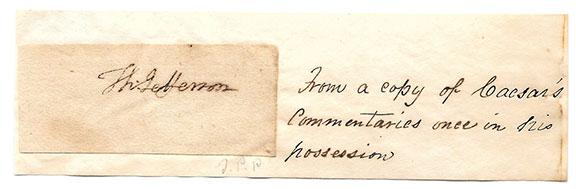 Th: Jefferson
From a copy of Caesar's
Commentaries once in his
possession
J. P. P.